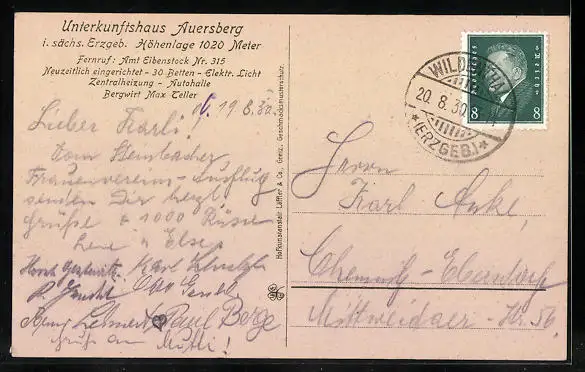 Unterkunftshaus Auersberg
i. sächs. Erzgeb. Höhenlage 1020 Meter
Fernruf: Amt Eibenstock Nr. 315
Neuzeitlich eingerichtet - 30 Betten - Elektr. Licht
Zentralheizung - Autohalle
Bergwirt Max Teller
19.8.30.
Lieber Karl!
Vom Steinbacher
Frauenverein-Ausflug
senden Dir herzl.
Grüße & 1000 Küsse
Lene u. Else
Karl
Paul Berge
Gruß an Mutti!
Hofkunstanstalt Löffler & Co., Greiz. Geschmacksmusterschutz.
WILDENTHAL
20.8.30
*(ERZGEB.)*
8 8
Herrn
Karl Anke,
Chemnitz-Ebersdorf
Mittweidaer-Str. 56